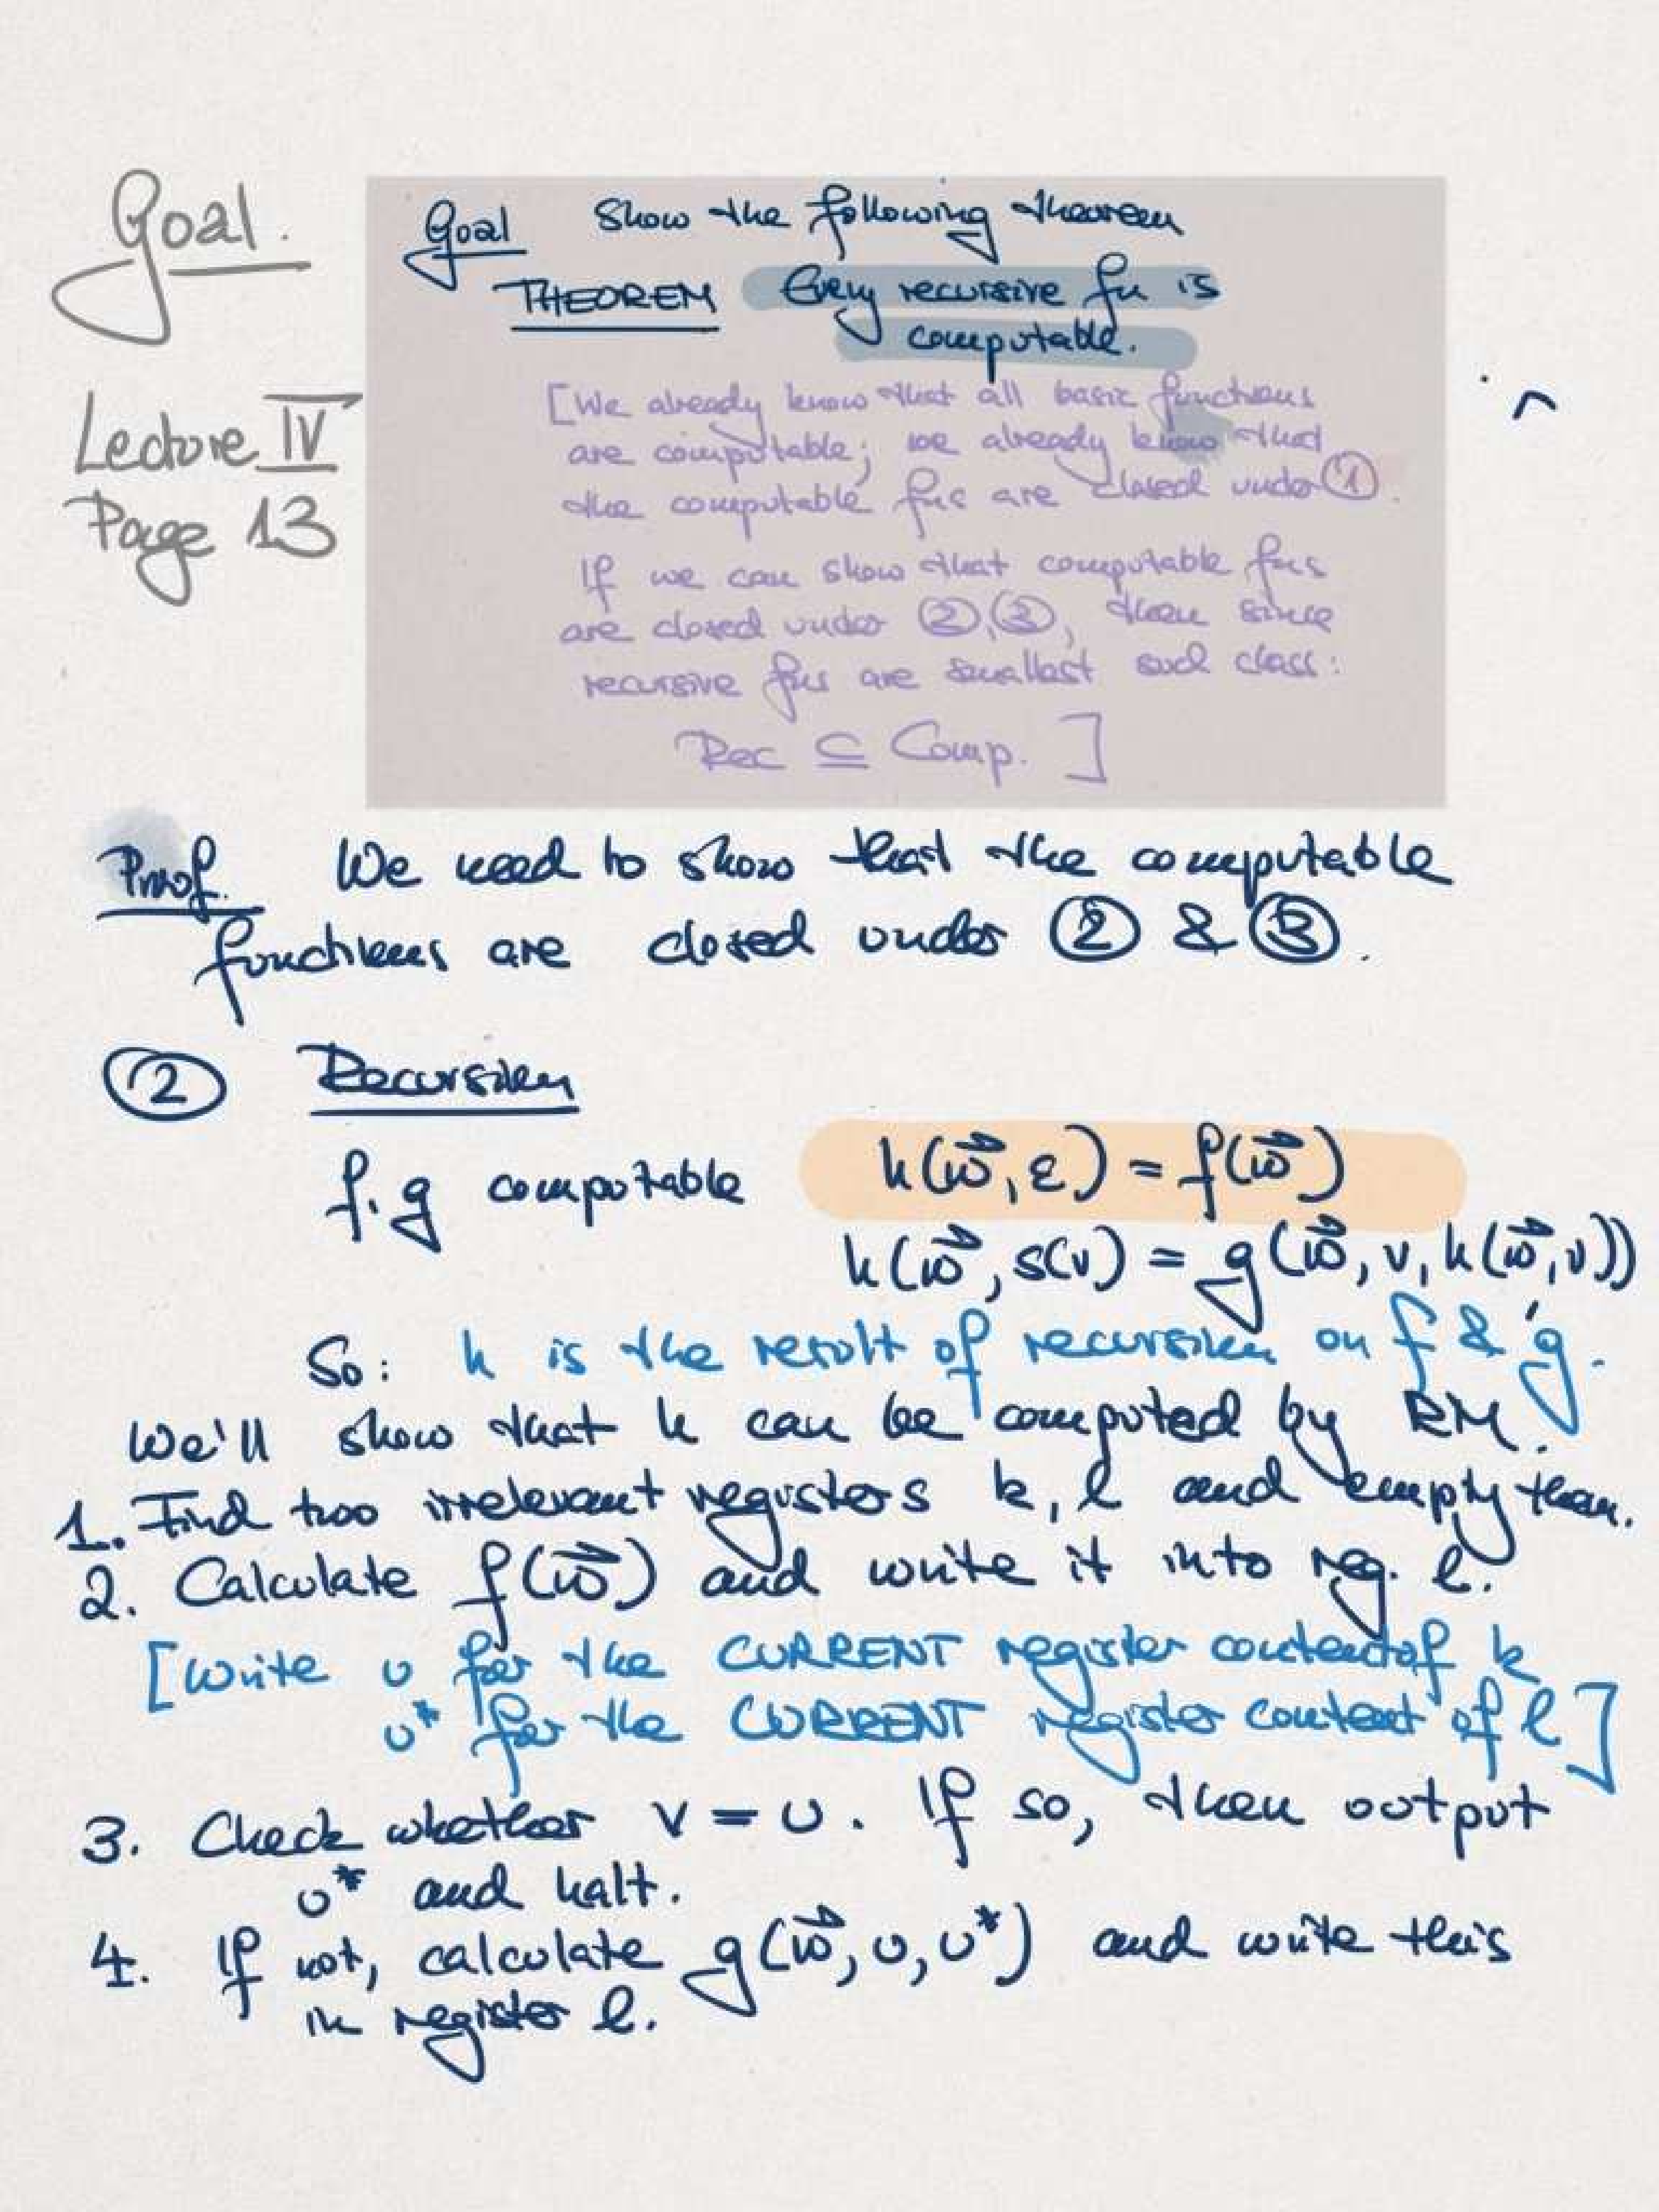 Goal.
Lecture IV
Page 13
Goal Show the following theorem
THEOREM Every recursive fn is
computable.
[We already know that all basic functions
are computable; we already know that
the computable fns are closed under ①.
If we can show that computable fns
are closed under ②,③, then since
recursive fns are smallest such class:
Rec ⊆ Comp. ]
Proof. We need to show that the computable
functions are closed under ② & ③.
② Recursion
f, g computable h(w⃗, ε) = f(w⃗)
h(w⃗, s(v)) = g(w⃗, v, h(w⃗, v))
So: h is the result of recursion on f & g.
We'll show that h can be computed by RM.
1. Find two irrelevant registers k, l and empty them.
2. Calculate f(w⃗) and write it into reg. l.
[Write u for the CURRENT register content of k
u* for the CURRENT register content of l]
3. Check whether v = u. If so, then output
u* and halt.
4. If not, calculate g(w⃗, u, u*) and write this
in register l.